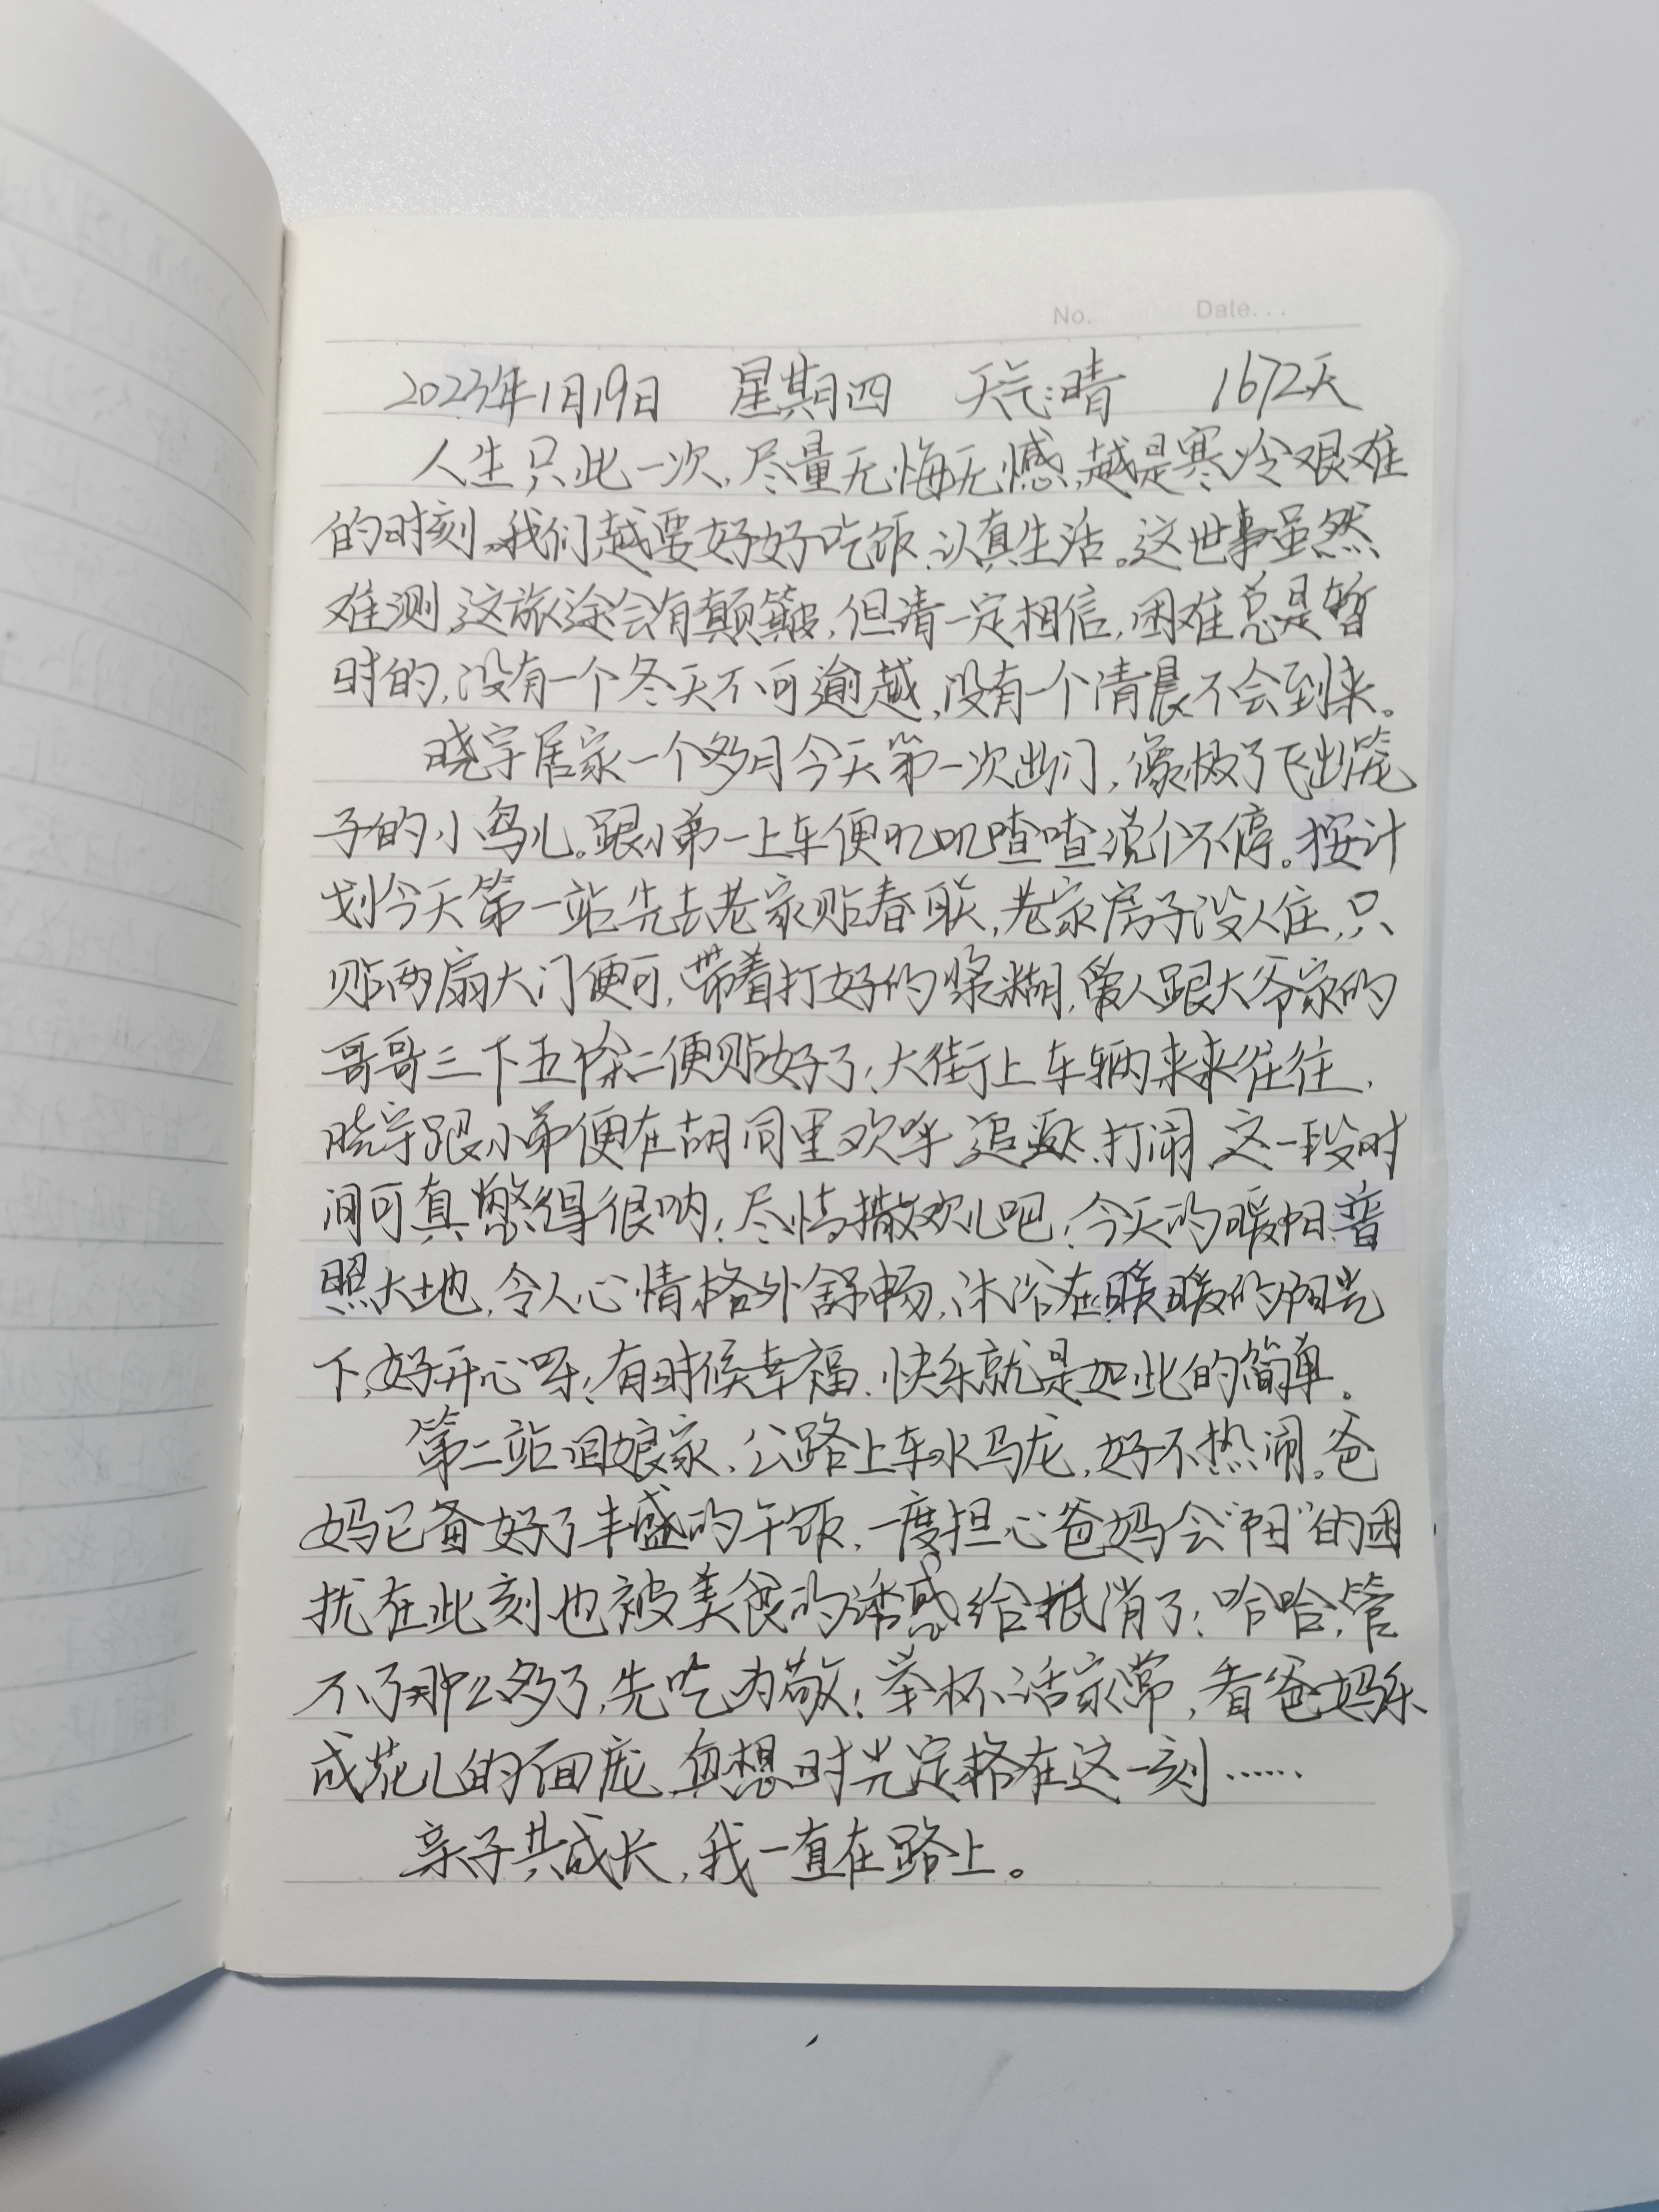 No. Date...
2023年1月19日 星期四 天气:晴 1672天
人生只此一次,尽量无悔无憾,越是寒冷艰难
的时刻,我们越要好好吃饭、认真生活。这世事虽然
难测,这旅途会有颠簸,但请一定相信,困难总是暂
时的,没有一个冬天不可逾越,没有一个清晨不会到来。
晓宇居家一个多月今天第一次出门,像极了飞出笼
子的小鸟儿。跟小弟一上车便叽叽喳喳说个不停。按计
划今天第一站先去老家贴春联,老家房子没人住,只
贴两扇大门便可,带着打好的浆糊,爱人跟大爷家的
哥哥三下五除二便贴好了!大街上车辆来来往往,
晓宇跟小弟便在胡同里欢呼、追逐、打闹,这一段时
间可真憋得很呐!尽情撒欢儿吧!今天的暖阳普
照大地,令人心情格外舒畅,沐浴在暖暖的阳光
下,好开心呀!有时候幸福、快乐就是如此的简单。
第二站回娘家,公路上车水马龙,好不热闹。爸
妈已备好了丰盛的午饭,一度担心爸妈会“阳”的困
扰在此刻也被美食的诱惑给抵消了!哈哈,管
不了那么多了,先吃为敬!举杯话家常,看爸妈乐
成花儿的面庞,真想时光定格在这一刻……
亲子共成长,我一直在路上。